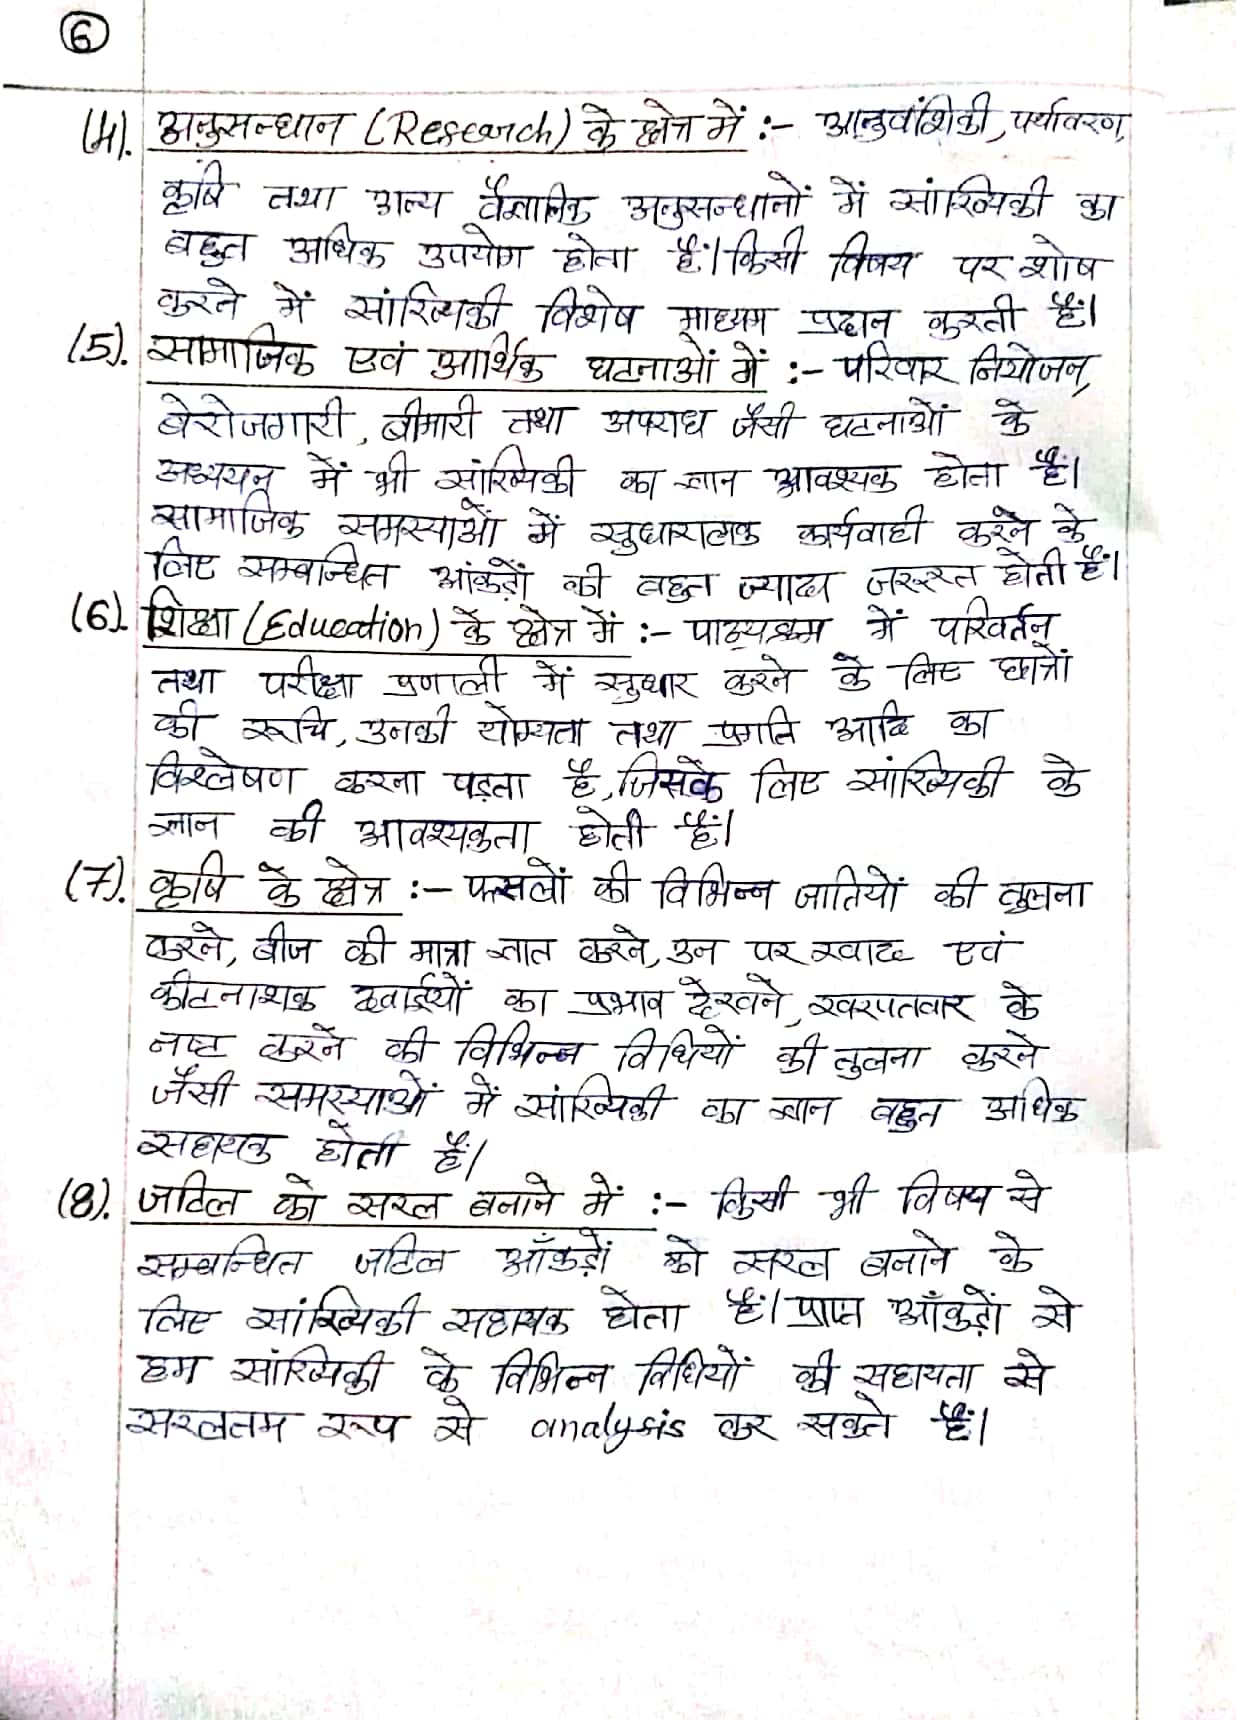 6
(4). अनुसन्धान (Research) के क्षेत्र में :- आनुवांशिकी, पर्यावरण,
कृषि तथा अन्य वैज्ञानिक अनुसन्धानों में सांख्यिकी का
बहुत अधिक उपयोग होता हैं। किसी विषय पर शोध
करने में सांख्यिकी विशेष माध्यम प्रदान करती हैं।
(5). सामाजिक एवं आर्थिक घटनाओं में :- परिवार नियोजन,
बेरोजगारी, बीमारी तथा अपराध जैसी घटनाओं के
अध्ययन में भी सांख्यिकी का ज्ञान आवश्यक होता हैं।
सामाजिक समस्याओं में सुधारात्मक कार्यवाही करने के
लिए सम्बन्धित आंकड़ों की बहुत ज्यादा जरूरत होती हैं।
(6). शिक्षा (Education) के क्षेत्र में :- पाठ्यक्रम में परिवर्तन
तथा परीक्षा प्रणाली में सुधार करने के लिए छात्रों
की रूचि, उनकी योग्यता तथा प्रगति आदि का
विश्लेषण करना पड़ता है, जिसके लिए सांख्यिकी के
ज्ञान की आवश्यकता होती हैं।
(7). कृषि के क्षेत्र :- फसलों की विभिन्न जातियों की तुलना
करने, बीज की मात्रा ज्ञात करने, उन पर खाद एवं
कीटनाशक दवाईयों का प्रभाव देखने, खरपतवार के
नष्ट करने की विभिन्न विधियों की तुलना करने
जैसी समस्याओं में सांख्यिकी का ज्ञान बहुत अधिक
सहायक होती हैं।
(8). जटिल को सरल बनाने में :- किसी भी विषय से
सम्बन्धित जटिल आँकड़ों को सरल बनाने के
लिए सांख्यिकी सहायक होता हैं। प्राप्त आँकड़ों से
हम सांख्यिकी के विभिन्न विधियों की सहायता से
सरलतम रूप से analysis कर सकते हैं।